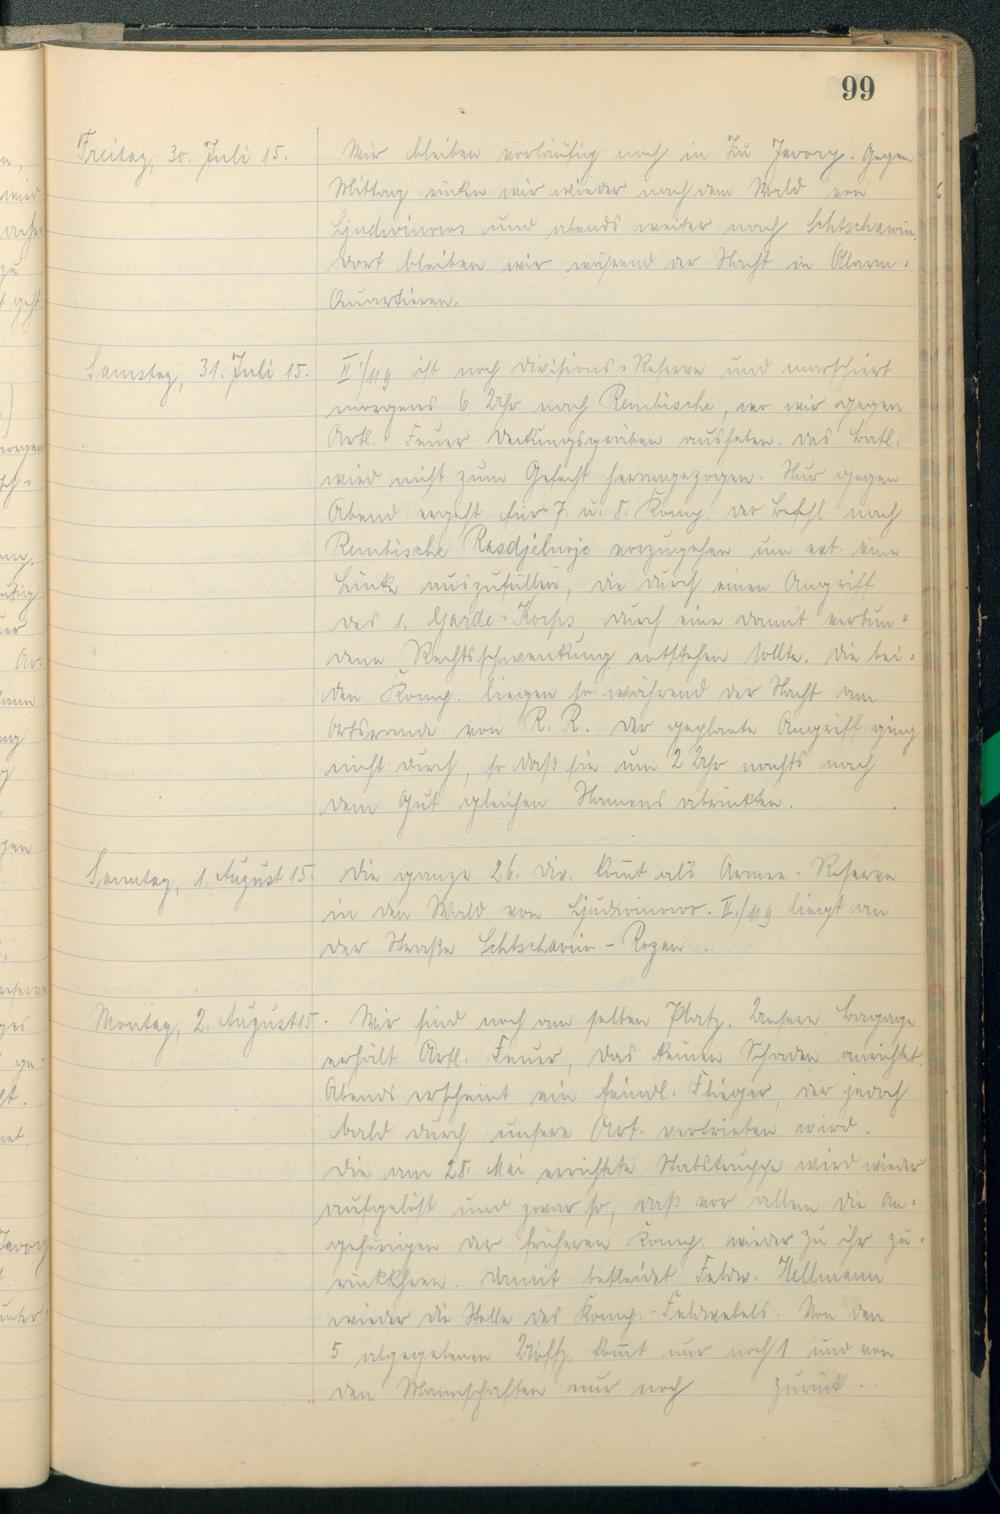 99
Freitag, 30. Juli 15. Wir bleiben vorläufig noch in Zu Javory. Gegen
Mittag rücken wir wieder nach dem Wald von
Ljudwinowo und abends weiter nach Schtschawin.
Dort bleiben wir während der Nacht in Alarm-
Quartieren.
Samstag, 31. Juli 15. II./119 ist noch Divisions-Reserve und marschiert
morgens 6 Uhr nach Rembische, wo wir gegen
Artl. Feuer Deckungsgräben ausheben. Das Batl.
wird nicht zum Gefecht herangezogen. Nur gegen
Abend ergeht für 7. u. 8. Komp. der Befehl nach
Rembische Rasdjelnoje vorzugehen um evt. eine
Lücke auszufüllen, die durch einen Angriff
des 1. Garde-Korps durch eine damit verbun-
dene Rechtsschwenkung entstehen sollte. Die bei-
den Komp. liegen so während der Nacht am
Ortsrande von R. R. Der geplante Angriff ging
nicht durch, so daß sie um 2 Uhr nachts nach
dem Gut gleichen Namens abrückten.
Sonntag, 1. August 15. Die ganze 26. Div. kommt als Armee-Reserve
in den Wald von Ljudwinowo. II./119 liegt an
der Straße Schtschawin - Rozan.
Montag, 2. August 15. Wir sind noch am selben Platz. Unsere Bagage
erhält Artl. Feuer, das keinen Schaden anrichtet.
Abends erscheint ein feindl. Flieger, der jedoch
bald durch unsere Art. vertrieben wird.
Die am 28. Mai errichtete Stabstruppe wird wieder
aufgelöst und zwar so, daß vor allem die An-
gehörigen der früheren Komp. wieder zu ihr zu-
rückkehren. Damit bekleidet Feldw. Hellmann
wieder die Stelle des Komp.-Feldwebels. Von den
5 abgegebenen Uoffz. kommt nur noch 1 und von
den Mannschaften nur noch zurück.